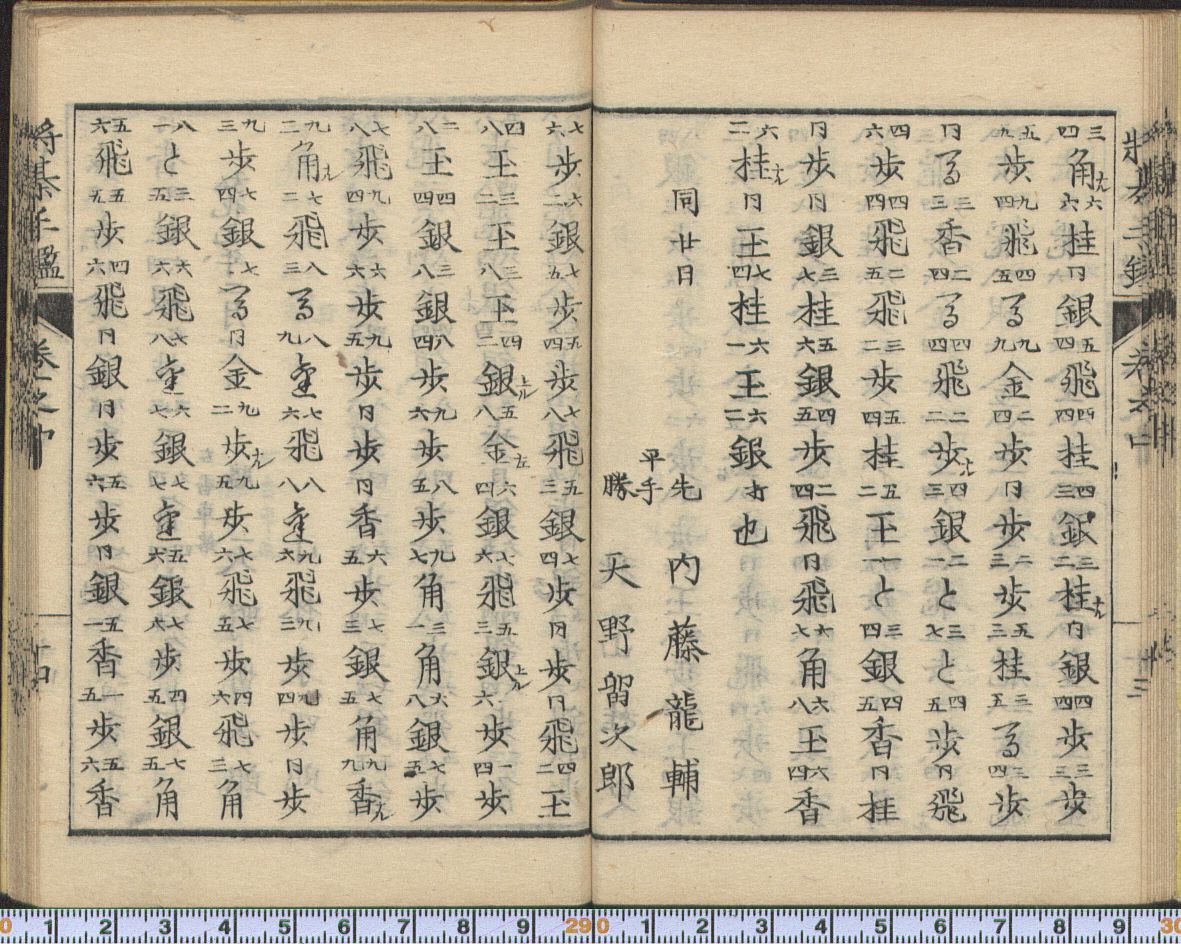 三四角ナル六六桂同銀五四飛四四桂四三銀三二桂ナル同銀四四歩三三歩
五九歩九四飛四五馬九九金二四歩同歩二三歩五三桂三五馬三四歩
同馬三三香二四馬四四飛二二歩ナル四三銀二二と三七と四五歩同飛
四六歩四五飛二五飛三二歩五四桂五二王一一と三四銀四五香同桂
同歩同銀三七桂五六銀四五歩二四飛同飛六七角六八王六四香
六二桂ナル同王七四桂六一王六二銀打也
同廿日
平手先 内藤龍輔
勝 天野留次郎
七六歩六二銀七五歩五四歩七八飛五三銀七四歩同歩同飛四二王
四八王三二王三八王四二銀上ル五八金左六四銀七六飛五三銀上ル六歩一四歩
二八王四四銀三八銀八四歩九六歩八五歩九七角三一角六八銀七五歩
七八飛九四歩六六歩九五歩同歩同香六五歩七三銀七五角九九香ナル
九二角ナル七二飛八三馬八九圣七六飛八八圣九六飛九三歩九四歩同歩
九三歩七四銀七馬同金九二歩ナル九五歩七六飛七五歩四六飛七三角
八一と三五銀六六飛七八圣六七銀七七圣五六銀七六歩四五銀七五角
五六飛五五歩四六飛同銀同歩五六歩同銀五一香一五歩五六香
将棊手鑑 巻之中 十四